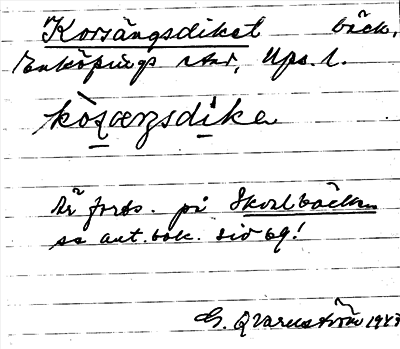 Korsängsdiket bäck,
Enköpings stad, Ups. l.
Är forts. på Skvalbäcken
se ant. bok. sid og!
G. Qvarnström 1947